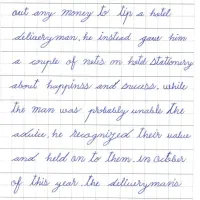 out any money to tip a hotel
deliveryman, he instead gave him
a couple of notes on hotel stationery
about happinss and success, while
the man was probably unable the
advice, he recognized their value
and held on to them. in october
of this year, the deliveryman's